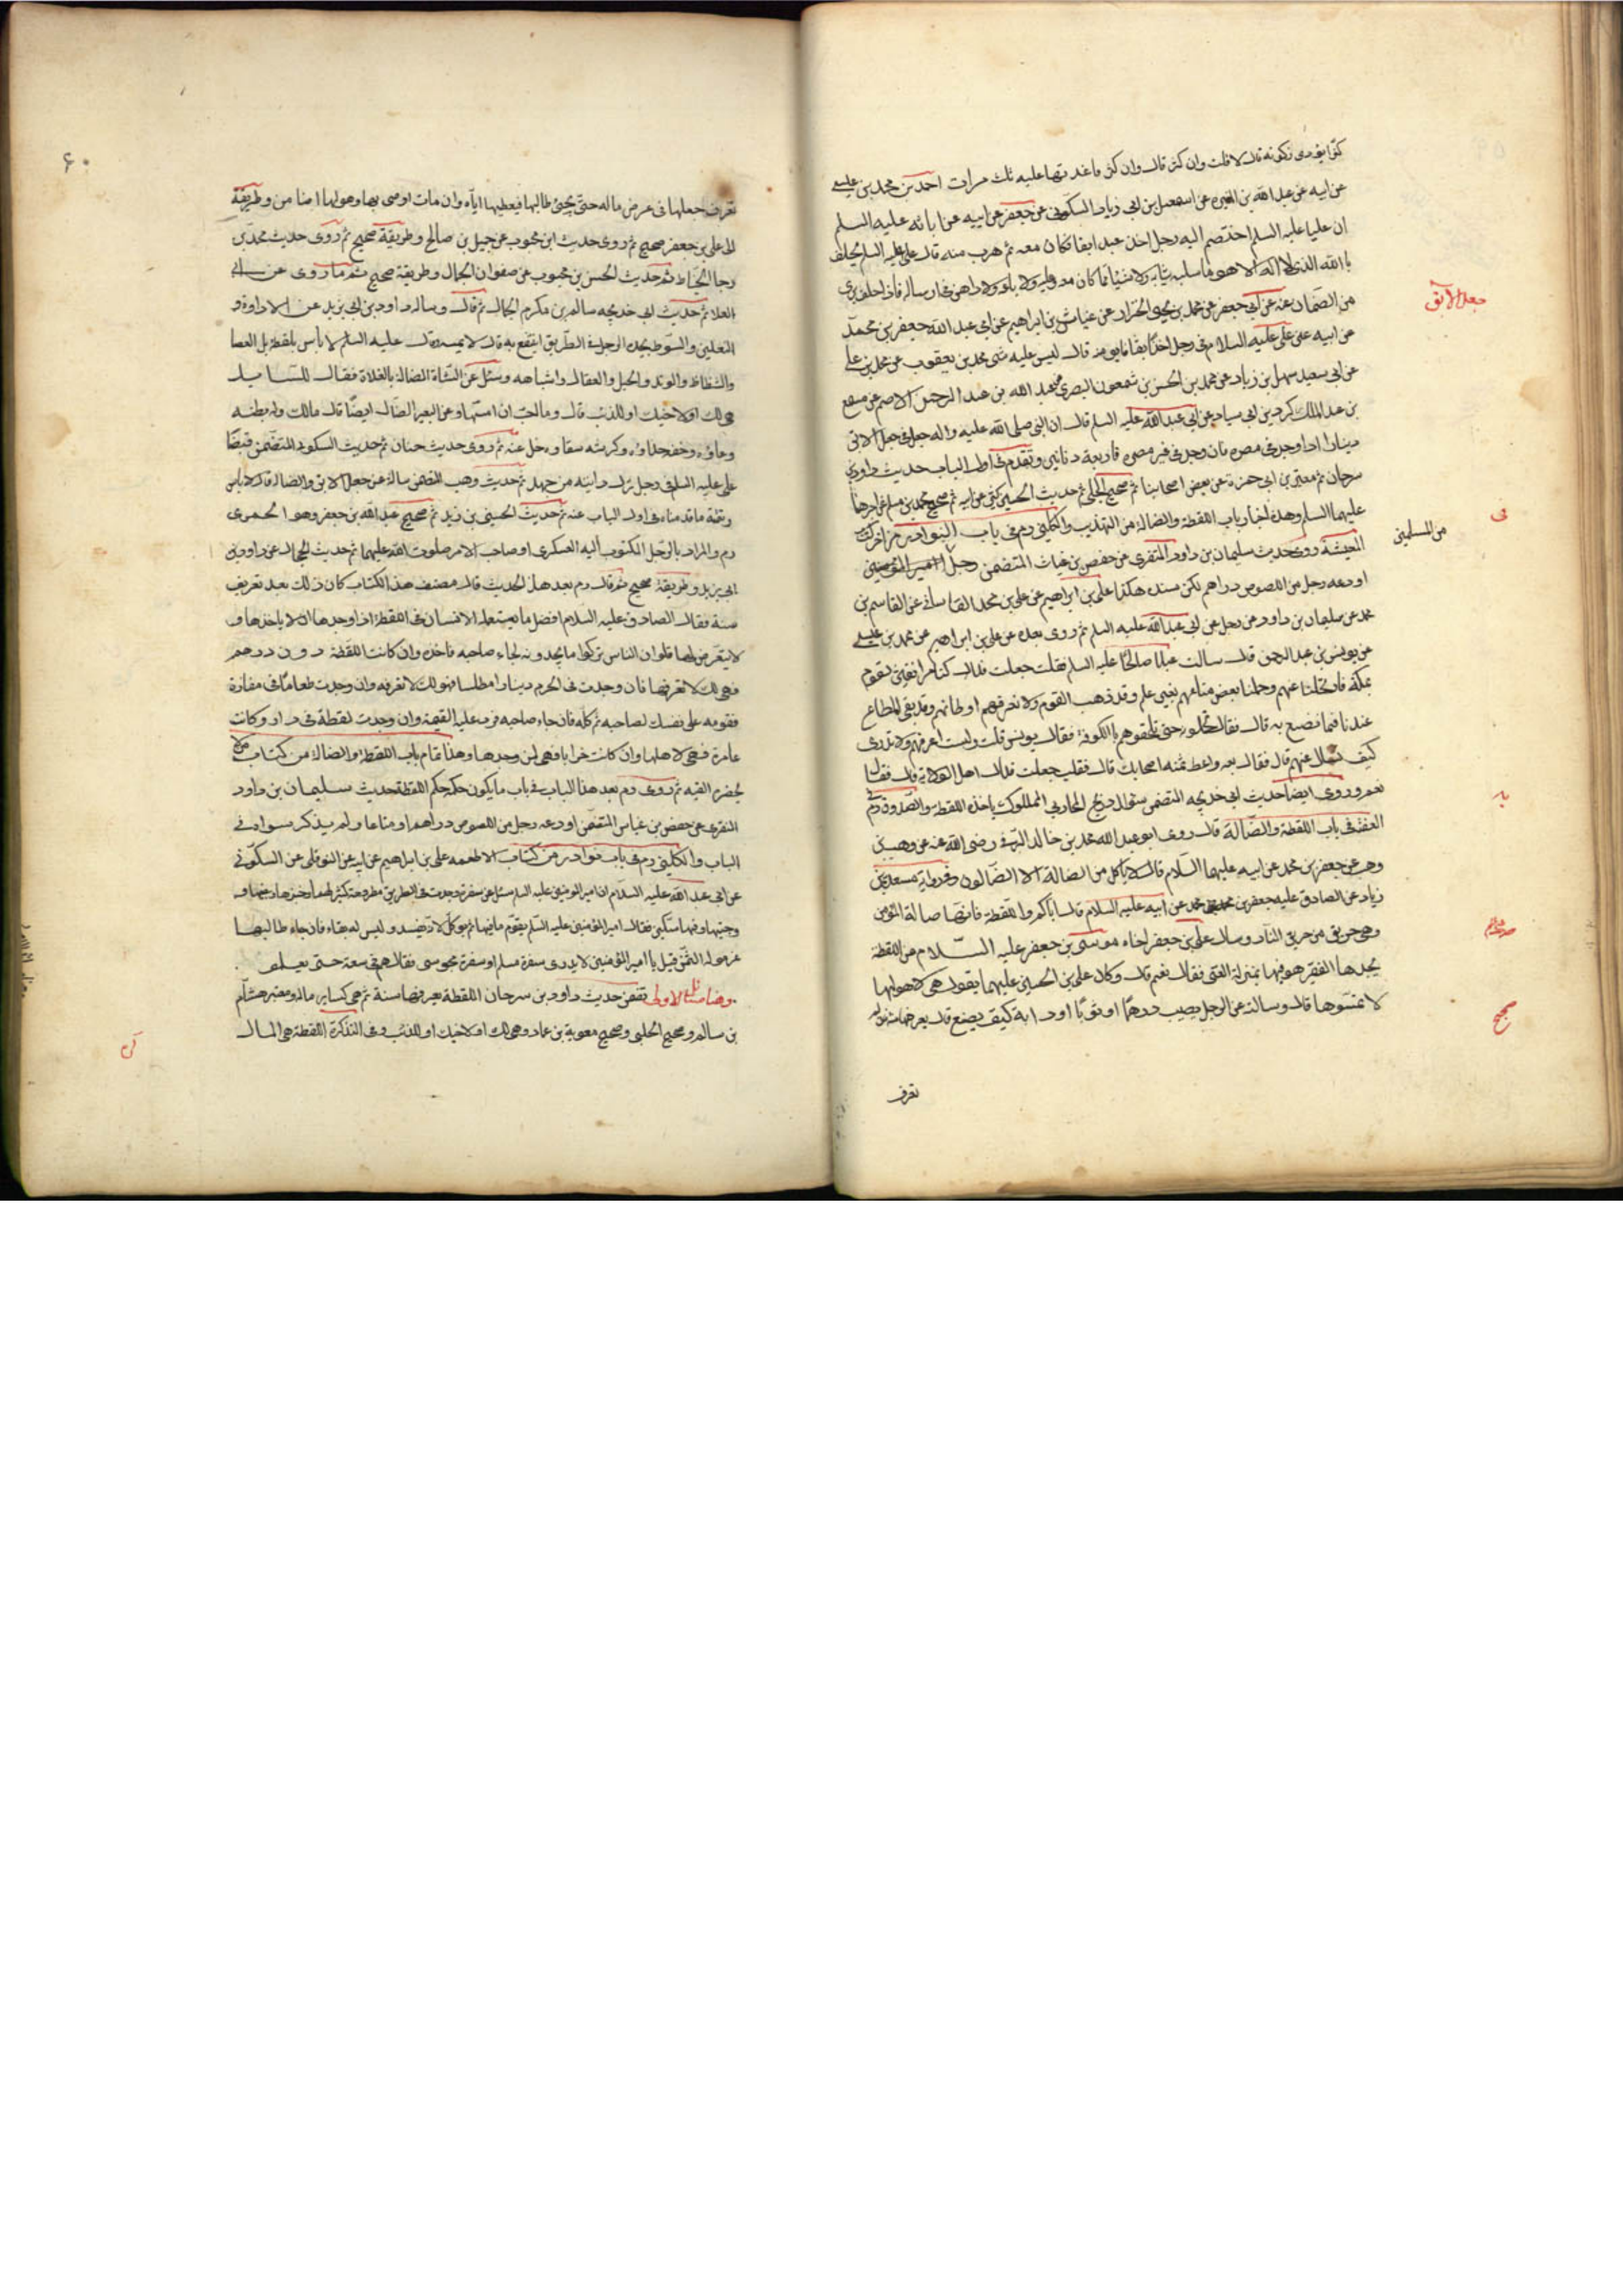 قال لا قلت وان كثر قال وان كثر ما غذ بها عليه ثلث مرات احمد بن محمد بن عيسى
عن ابيه عن عبد الله بن المغيرة عن اسمعيل بن ابي زياد السكوني عن جعفر عن ابيه عن ابائه عليه السلم
ان عليا عليه السلم اختصم اليه رجل اخذ عبدا ابقا فكان معه ثم هرب منه قال على عليه السلم يحلف
بالله الذى لا اله الا هو ما سلبه ثيابه ولا شيئا مما كان معه ولا باعه ولا داهن فى ارساله فاذا حلف برى
من الضمان عنه عن ابي جعفر عن محمد بن يحيى الخزاز عن غياث بن ابراهيم عن ابي عبد الله جعفر بن محمد
عن ابيه عن على عليه السلام فى رجل اخذ ابقا فابق منه قال ليس عليه شى محمد بن يعقوب عن محمد بن على
عن ابي سعيد سهل بن زياد عن محمد بن الحسن بن شمعون البصرى عن عبد الله بن عبد الرحمن الاصم عن مسمع
بن عبد الملك كردين ابي سيار عن ابي عبد الله عليه السلم قال ان النبي صلى الله عليه واله جعل فى جعل الابق
دينارا اذا وجد فى مصره فان وجد فى غير مصره فاربعة دنانير وتقدم فى اول الباب حديث داود بن
سرحان ثم معتبر بن ابي حمزة عن بعض اصحابنا ثم صحيح الحلبي ثم حديث الحسين كثير عن ابيه ثم صحيح محمد بن مسلم عن احدهما
عليهما السلم وهذه اخبار باب اللقطة والضالة من التهذيب والكليني رم فى باب النوادر من اخر كتاب
المعيشة روى حديث سليمان بن داود المنقرى عن حفص بن غياث المتضمن رجل
اودعه رجل من اللصوص دراهم لكن سنده هكذا على بن ابراهيم عن على بن محمد القاسانى عن القاسم بن
محمد عن سليمان بن داود عن رجل عن ابي عبد الله عليه السلم ثم روى بعده عن على بن ابراهيم عن محمد بن عيسى
عن يونس بن عبد الرحمن قال سالت عبدا صالحا عليه السلم فقلت جعلت فداك كنا مرافقين لقوم
بمكة فارتحلنا عنهم وحملنا بعض متاعهم بغير علم وقد ذهب القوم ولا نعرفهم ولا نعرف اوطانهم وقد بقى المتاع
عندنا فما نصنع به قال فقال تحملونه حتى تلحقوهم بالكوفة فقال يونس قلت ولست اعرفهم ولا ندرى
كيف نسال عنهم قال فقال بعه واعط ثمنه اصحابك قال فقلت جعلت فداك اهل الولاية قال فقال
نعم وروى ايضا حديث ابي خديجه المتضمن سؤال ذريح المحاربي المملوك ياخذ اللقطة والصدوق رم فى
الفقيه فى باب اللقطة والضالة قال روى ابو عبد الله محمد بن خالد البرقى رضى الله عنه عن وهب بن
وهب عن جعفر بن محمد عن ابيه عليهما السلام قال لا ياكل من الضالة الا الضالون وفى رواية مسعدة بن
زياد عن الصادق عليه جعفر بن محمد عن ابيه عليه السلام قال اياكم واللقطة فانها ضالة المؤمن
وهى حريق من حريق النار وسال على بن جعفر اخاه موسى بن جعفر عليه السلام من اللقطة
يجدها الفقير هو فيها بمنزلة الغنى فقال نعم قال وكان على بن الحسين عليهما يقول هى لاهلها
لا تمسوها قال وسالته عن الرجل يصيب درهما او ثوبا او دابة كيف يصنع قال يعرفها سنة فان لم
تعرف
جعل الابق
من المسلمين
صحيح
۶۰
تعرف جعلها فى عرض ماله حتى يجئ طالبها فيعطيها اياه وان مات اوصى بها وهو لها ضامن وطريقة
الى على بن جعفر صحيح ثم روى حديث ابن محبوب عن جميل بن صالح وطريقة صحيح ثم روى حديث محمد بن
رجا الخياط ثم حديث الحسن بن محبوب عن صفوان الجمال وطريقة صحيح ثم ما روى عن ابي
العلا ثم حديث ابي خديجه سالم بن مكرم الجمال ثم قال وساله داود بن ابي يزيد عن الاداوة و
النعلين والسوط يجده الرجل فى الطريق اينتفع به قال لا يمسه وقال عليه السلم لا بأس بلقطة العصا
والشظاظ والوتد والحبل والعقال واشباهه وسئل عن الشاة الضالة بالفلاة فقال للسايل
هى لك او لاخيك او للذئب قال وما احب ان امسها وعن البعير الضال ايضا قال مالك وله بطنه
وعاؤه وخفه حذاؤه وكرشه سقاؤه خل عنه ثم روى حديث حنان ثم حديث السكونى المتضمن قضا
على عليه السلم فى رجل ترك دابته من جهد ثم حديث وهب المتضمن ساله عن جعل الابق والضالة قال لا باس
وتتمة ما قدمناه فى اول الباب عنه ثم حديث الحسين بن زيد ثم صحيح عبد الله بن جعفر وهو الحميرى
رم والمراد بالرجل المكتوب اليه العسكرى او صاحب الامر صلوت الله عليهما ثم حديث الحجال عن داود بن
ابي يزيد وطريقة صحيح ثم قال رم بعد هذا الحديث قال مصنف هذا الكتاب كان ذلك بعد تعريف
سنة فقال الصادق عليه السلام افضل ما يستعمله الانسان فى اللقطة اذا وجدها الا ياخذها و
لا يتعرض لها فلو ان الناس تركوا ما يجدونه لجاء صاحبه فاخذه وان كانت اللقطة دون درهم
فهى لك لا تعرفها فان وجدت فى الحرم دينارا مطلسا فهو لك لا تعرفه وان وجدت طعاما فى مفازة
فقومه على نفسك لصاحبه ثم كله فان جاء صاحبه فرد عليه القيمة وان وجدت لقطة فى دار وكانت
عامرة فهى لاهلها وان كانت خرابا فهى لمن وجدها وهذا تمام باب اللقطة والضالة من كتاب من لا
يحضره الفقيه ثم روى رم بعد هذا الباب فى باب ما يكون حكمه حكم اللقطة حديث سليمان بن داود
المنقرى عن حفص بن غياث المتضمن اودعه رجل من اللصوص دراهم او متاعا ولم يذكر سواه فى
الباب والكليني رم فى باب نوادر من كتاب الاطعمه على بن ابراهيم عن ابيه عن النوفلى عن السكونى
عن ابي عبد الله عليه السلام ان امير المؤمنين عليه السلم سئل عن سفرة وجدت فى الطريق مطروحة كثير لحمها وخبزها وجبنها و
وبيضها وفيها سكين فقال امير المؤمنين عليه السلم يقوم ما فيها ثم يؤكل لانه يفسد وليس له بقاء فاذا جاء طالبها
غرموا له الثمن قيل يا امير المؤمنين لا يدرى سفرة مسلم او سفرة مجوسى فقال هم فى سعة حتى يعلموا
وهنا مسائل الاولى تضمن حديث داود بن سرحان اللقطة يعرفها سنة ثم هى كساير ماله ومعتبر هشام
بن سالم وصحيح الحلبي وصحيح معوية بن عمار وهى لك او لاخيك او للذئب وفى التذكرة اللقطة هى المال